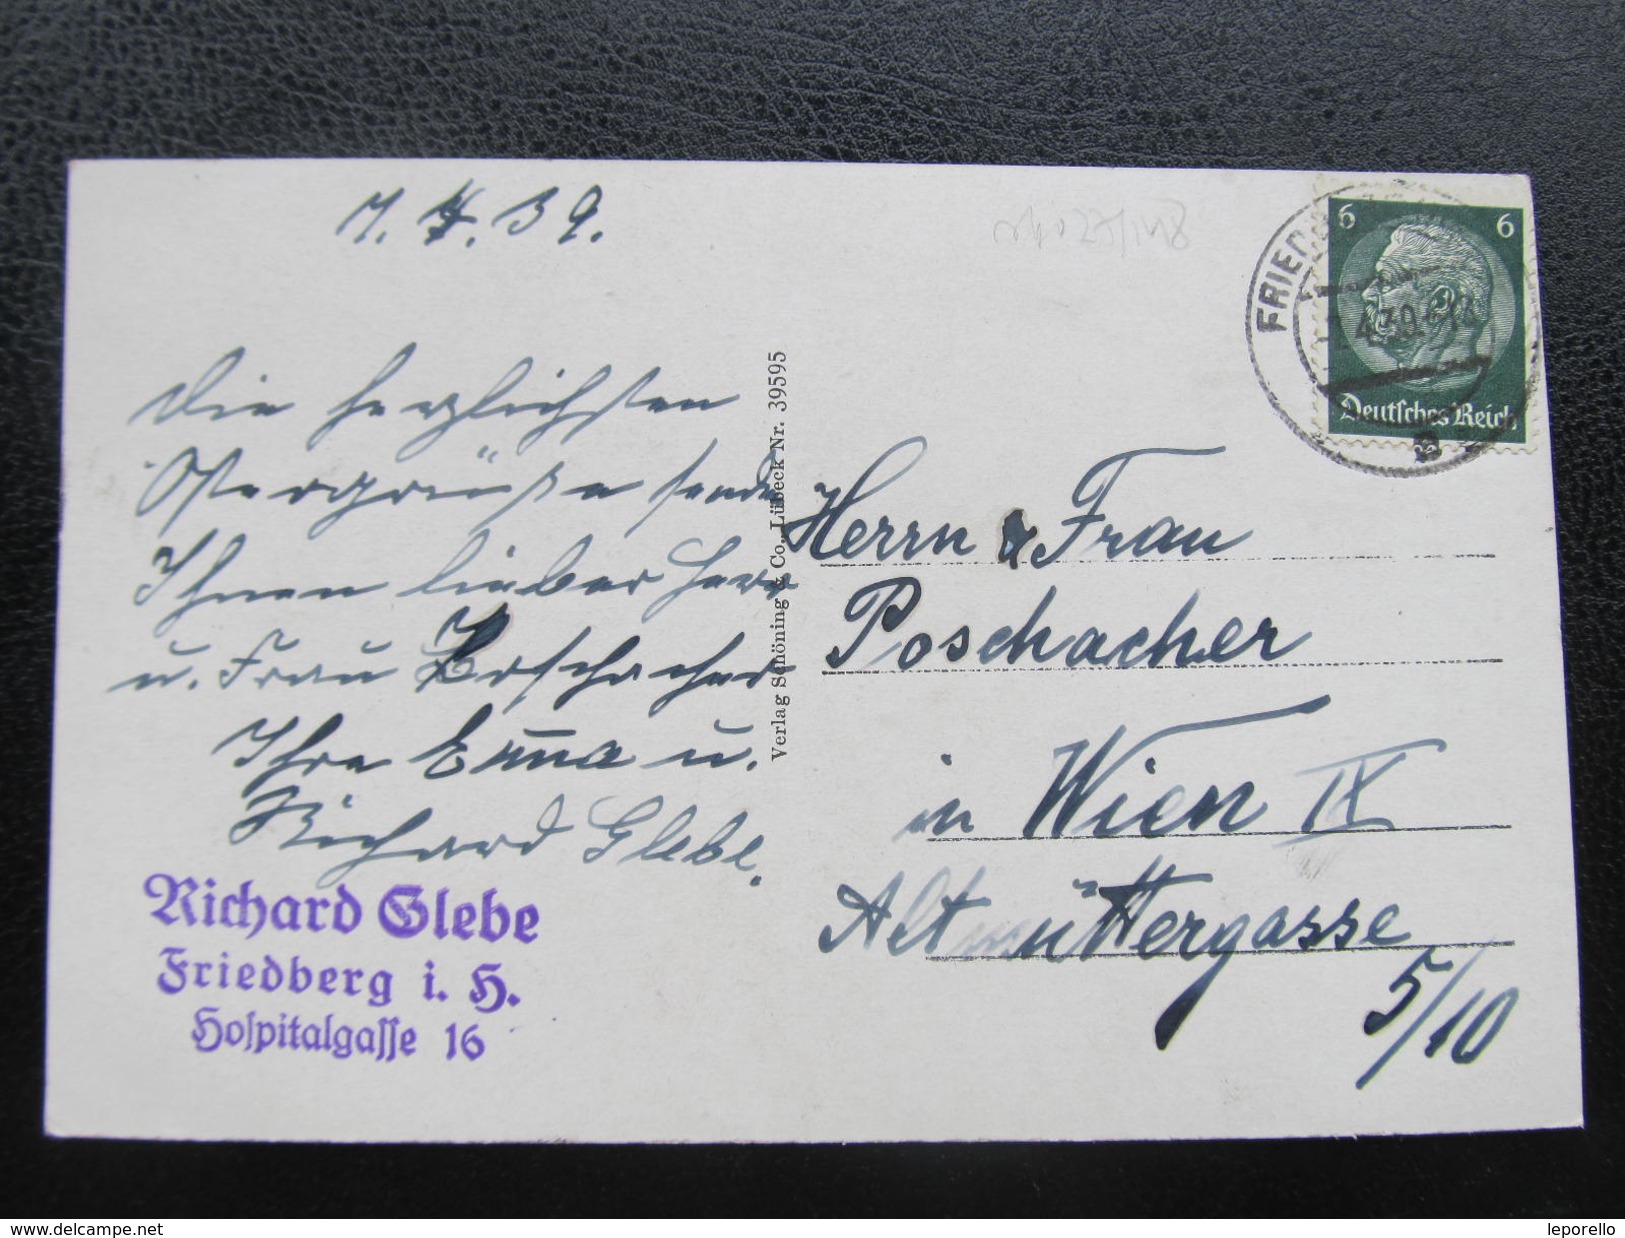 7. 4. 39.
Die herzlichsten
Ostergrüße sende
Ihnen lieber Herr
u. Frau Poschacher
Ihre Erna u.
Richard Glebe.
Richard Glebe
Friedberg i. H.
Hospitalgasse 16
Verlag Schöning & Co., Lübeck Nr. 39595
6 6
Deutsches Reich
Herrn & Frau
Poschacher
in Wien IX
Altmüttergasse
5/10
www.delcampe.net
leporello